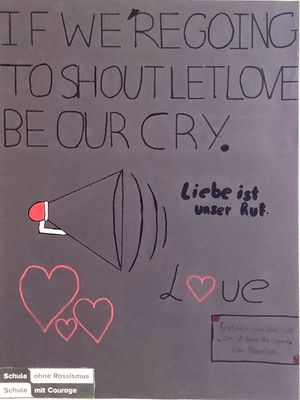 IF WE'RE GOING
TO SHOUT LET LOVE
BE OUR CRY.
Liebe ist
unser Ruf.
Love
Schule ohne Rassismus
Schule mit Courage